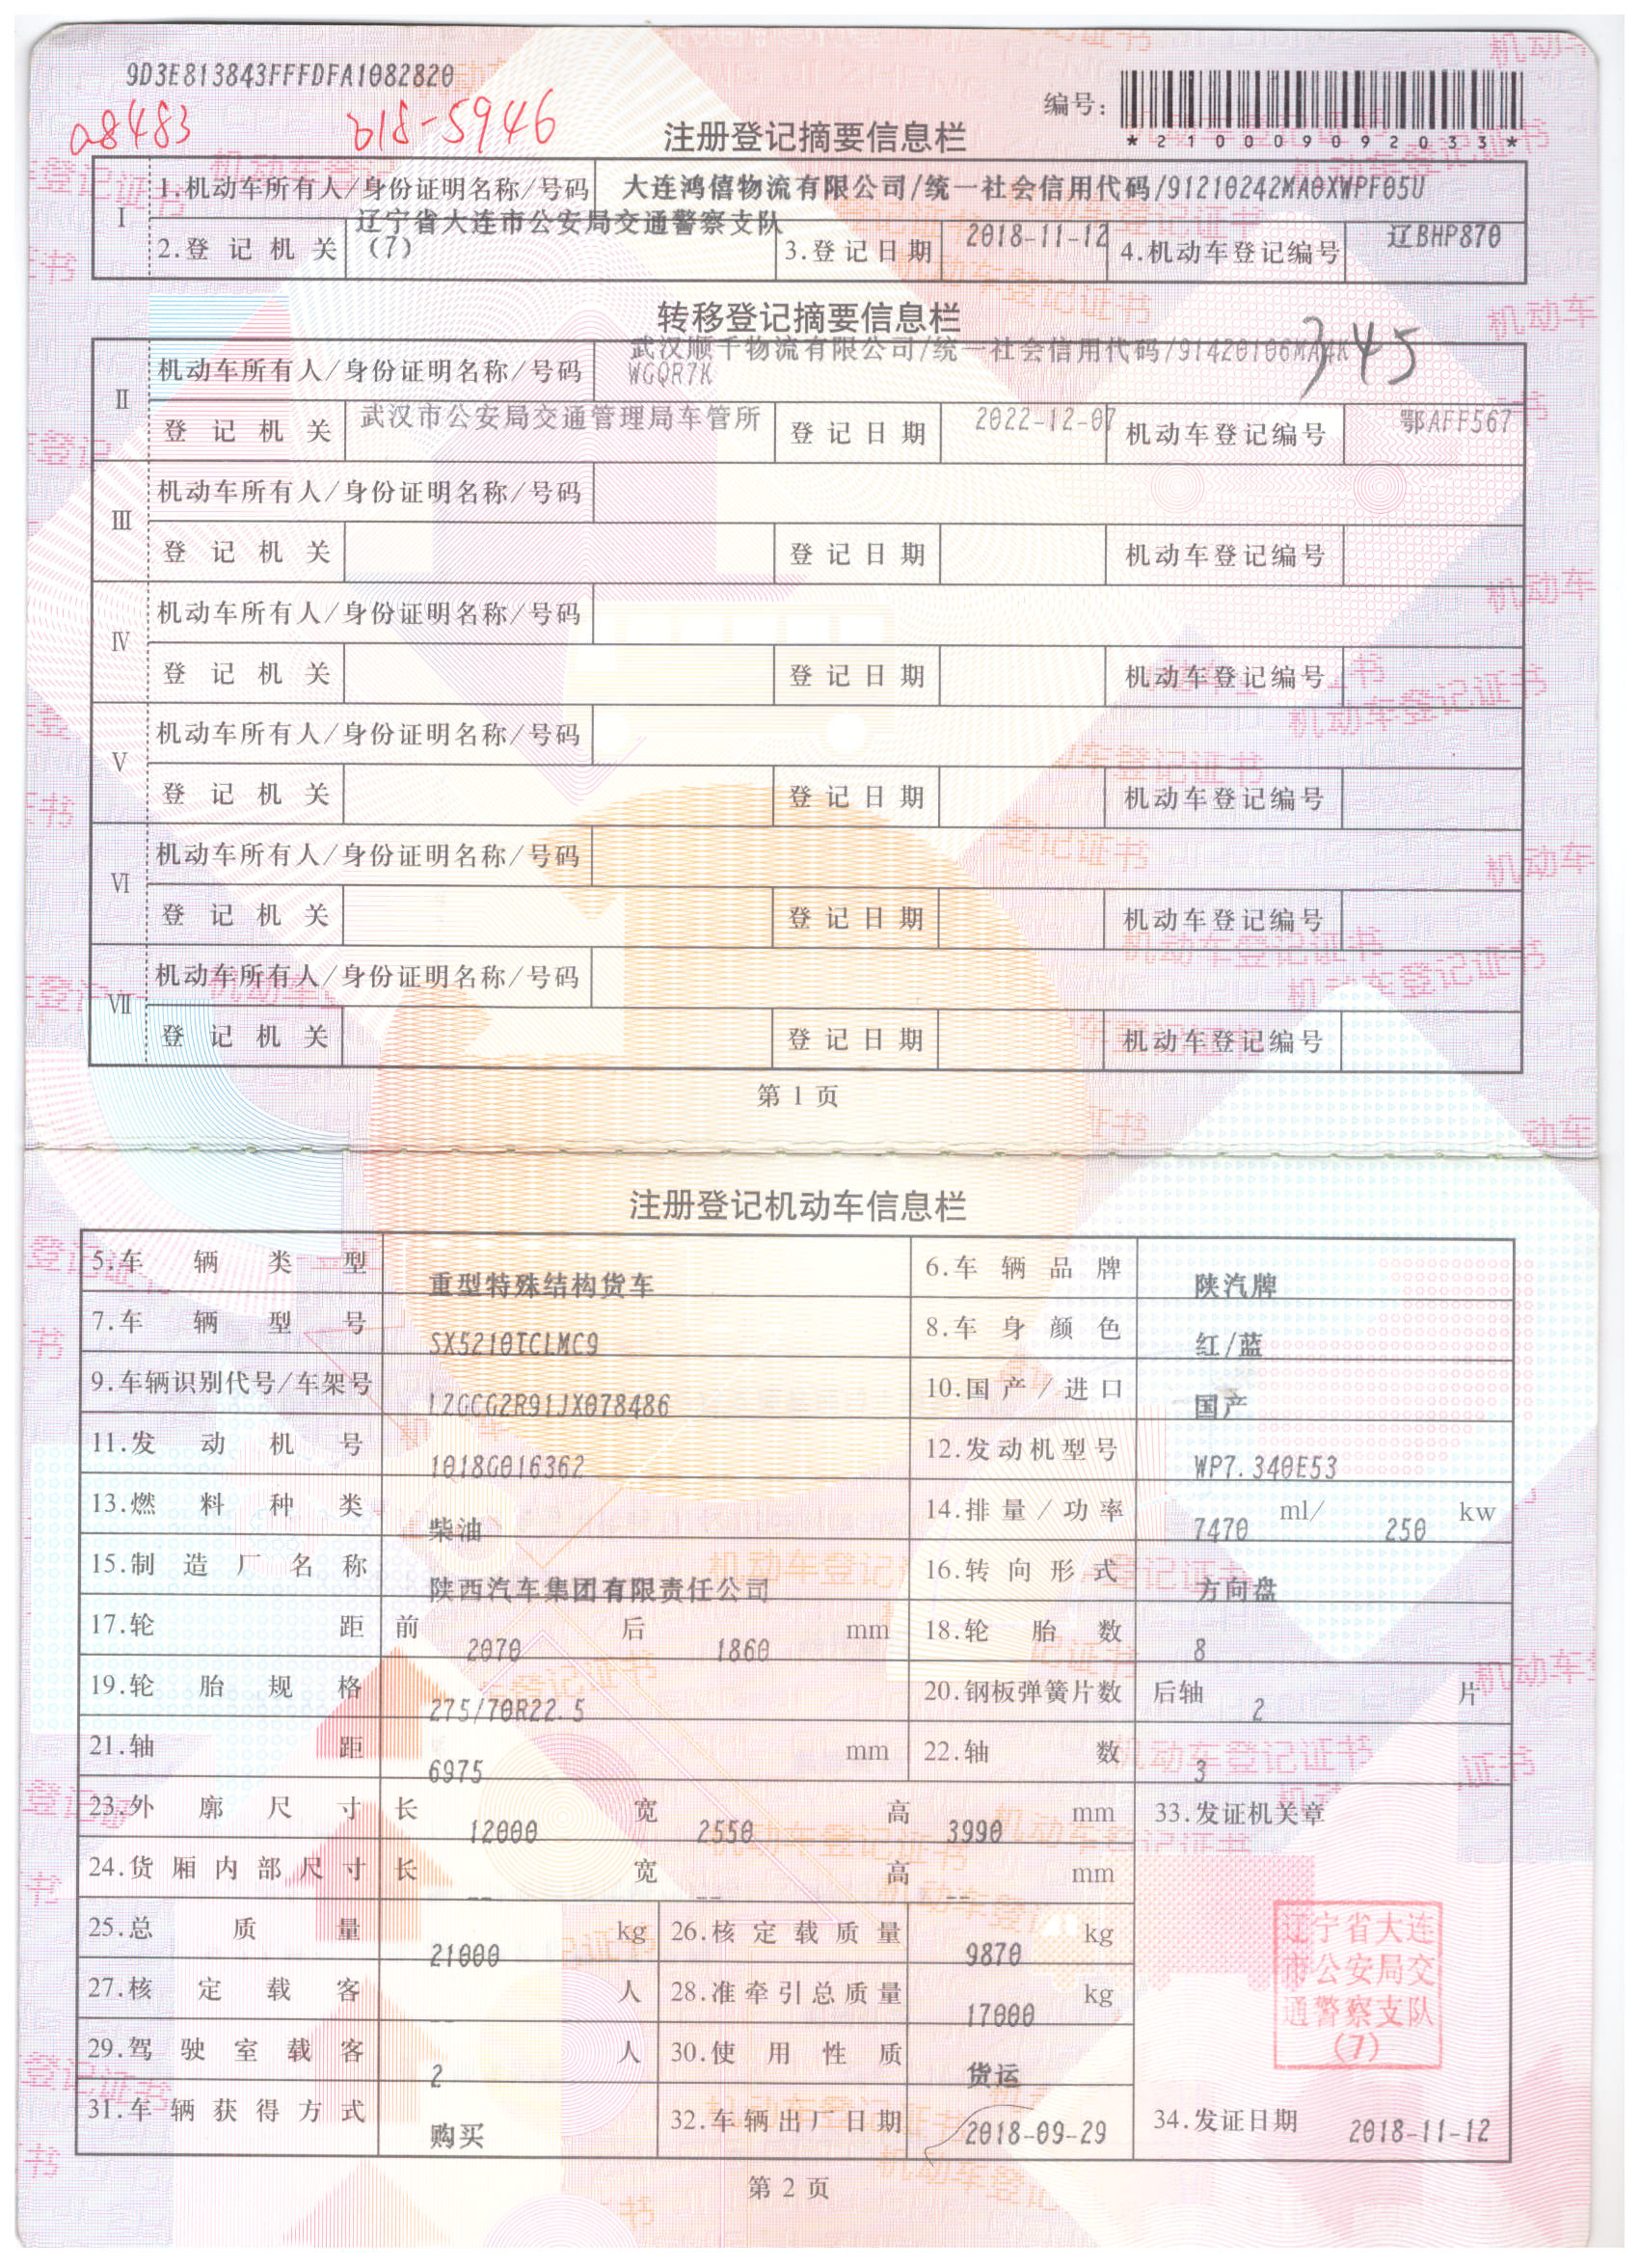 9D3E813843FFFDFA1082820
a8483 b18-5946
编号：
*210009092033*
注册登记摘要信息栏
I
1.机动车所有人/身份证明名称/号码 大连鸿僖物流有限公司/统一社会信用代码/91210242MA0XWPF05U
2.登记机关 辽宁省大连市公安局交通警察支队(7) 3.登记日期 2018-11-12 4.机动车登记编号 辽BHP870
转移登记摘要信息栏
345
II
机动车所有人/身份证明名称/号码 武汉顺千物流有限公司/统一社会信用代码/91420106MA4KWGQR7K
登记机关 武汉市公安局交通管理局车管所 登记日期 2022-12-07 机动车登记编号 鄂AFF567
III
机动车所有人/身份证明名称/号码
登记机关 登记日期 机动车登记编号
IV
机动车所有人/身份证明名称/号码
登记机关 登记日期 机动车登记编号
V
机动车所有人/身份证明名称/号码
登记机关 登记日期 机动车登记编号
VI
机动车所有人/身份证明名称/号码
登记机关 登记日期 机动车登记编号
VII
机动车所有人/身份证明名称/号码
登记机关 登记日期 机动车登记编号
第 1 页
注册登记机动车信息栏
5.车辆类型 重型特殊结构货车 6.车辆品牌 陕汽牌
7.车辆型号 SX5210TCLMC9 8.车身颜色 红/蓝
9.车辆识别代号/车架号 LZGCG2R91JX078486 10.国产/进口 国产
11.发动机号 1018G016362 12.发动机型号 WP7.340E53
13.燃料种类 柴油 14.排量/功率 7470 ml/ 250 kw
15.制造厂名称 陕西汽车集团有限责任公司 16.转向形式 方向盘
17.轮距 前 2070 后 1860 mm 18.轮胎数 8
19.轮胎规格 275/70R22.5 20.钢板弹簧片数 后轴 2 片
21.轴距 6975 mm 22.轴数 3
23.外廓尺寸 长 12000 宽 2550 高 3990 mm 33.发证机关章
24.货厢内部尺寸 长 -- 宽 -- 高 -- mm
25.总质量 21000 kg 26.核定载质量 9870 kg
27.核定载客 -- 人 28.准牵引总质量 17000 kg
辽宁省大连
市公安局交
通警察支队
(7)
29.驾驶室载客 2 人 30.使用性质 货运
31.车辆获得方式 购买 32.车辆出厂日期 2018-09-29 34.发证日期 2018-11-12
第 2 页